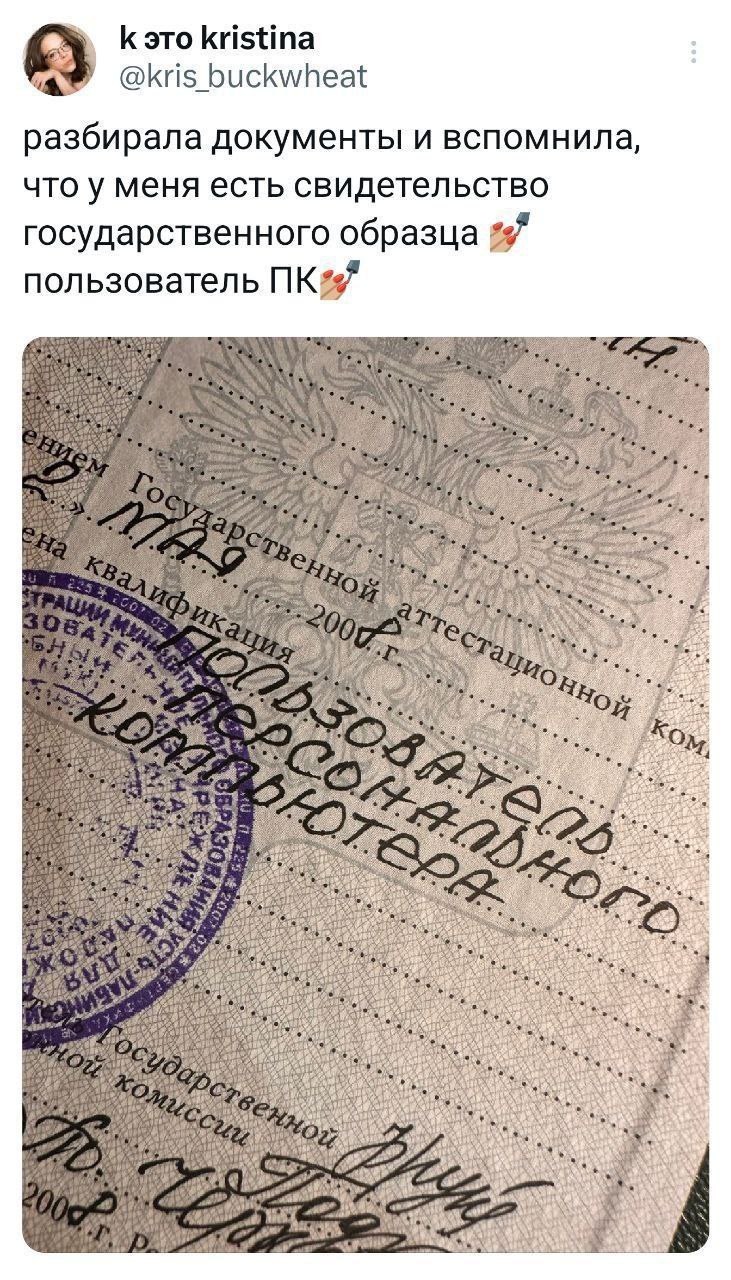 k это kristina
@kris_buckwheat
разбирала документы и вспомнила,
что у меня есть свидетельство
государственного образца 💅
пользователь ПК💅
ением Государственной аттестационной ком
2 » МАЯ 2008 г.
ена квалификация
ПОЛЬЗОВАТЕЛЬ
ПЕРСОНАЛЬНОГО
КОМПЬЮТЕРА
Государственной
ной комиссии
2008 г.